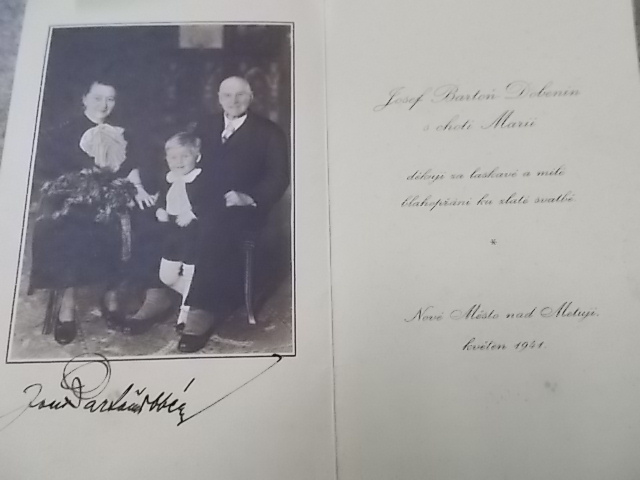 Josef Bartoň Dobenín
s chotí Marií
děkují za laskavé a milé
blahopřání ku zlaté svatbě.
*
Nové Město nad Metují,
květen 1941.